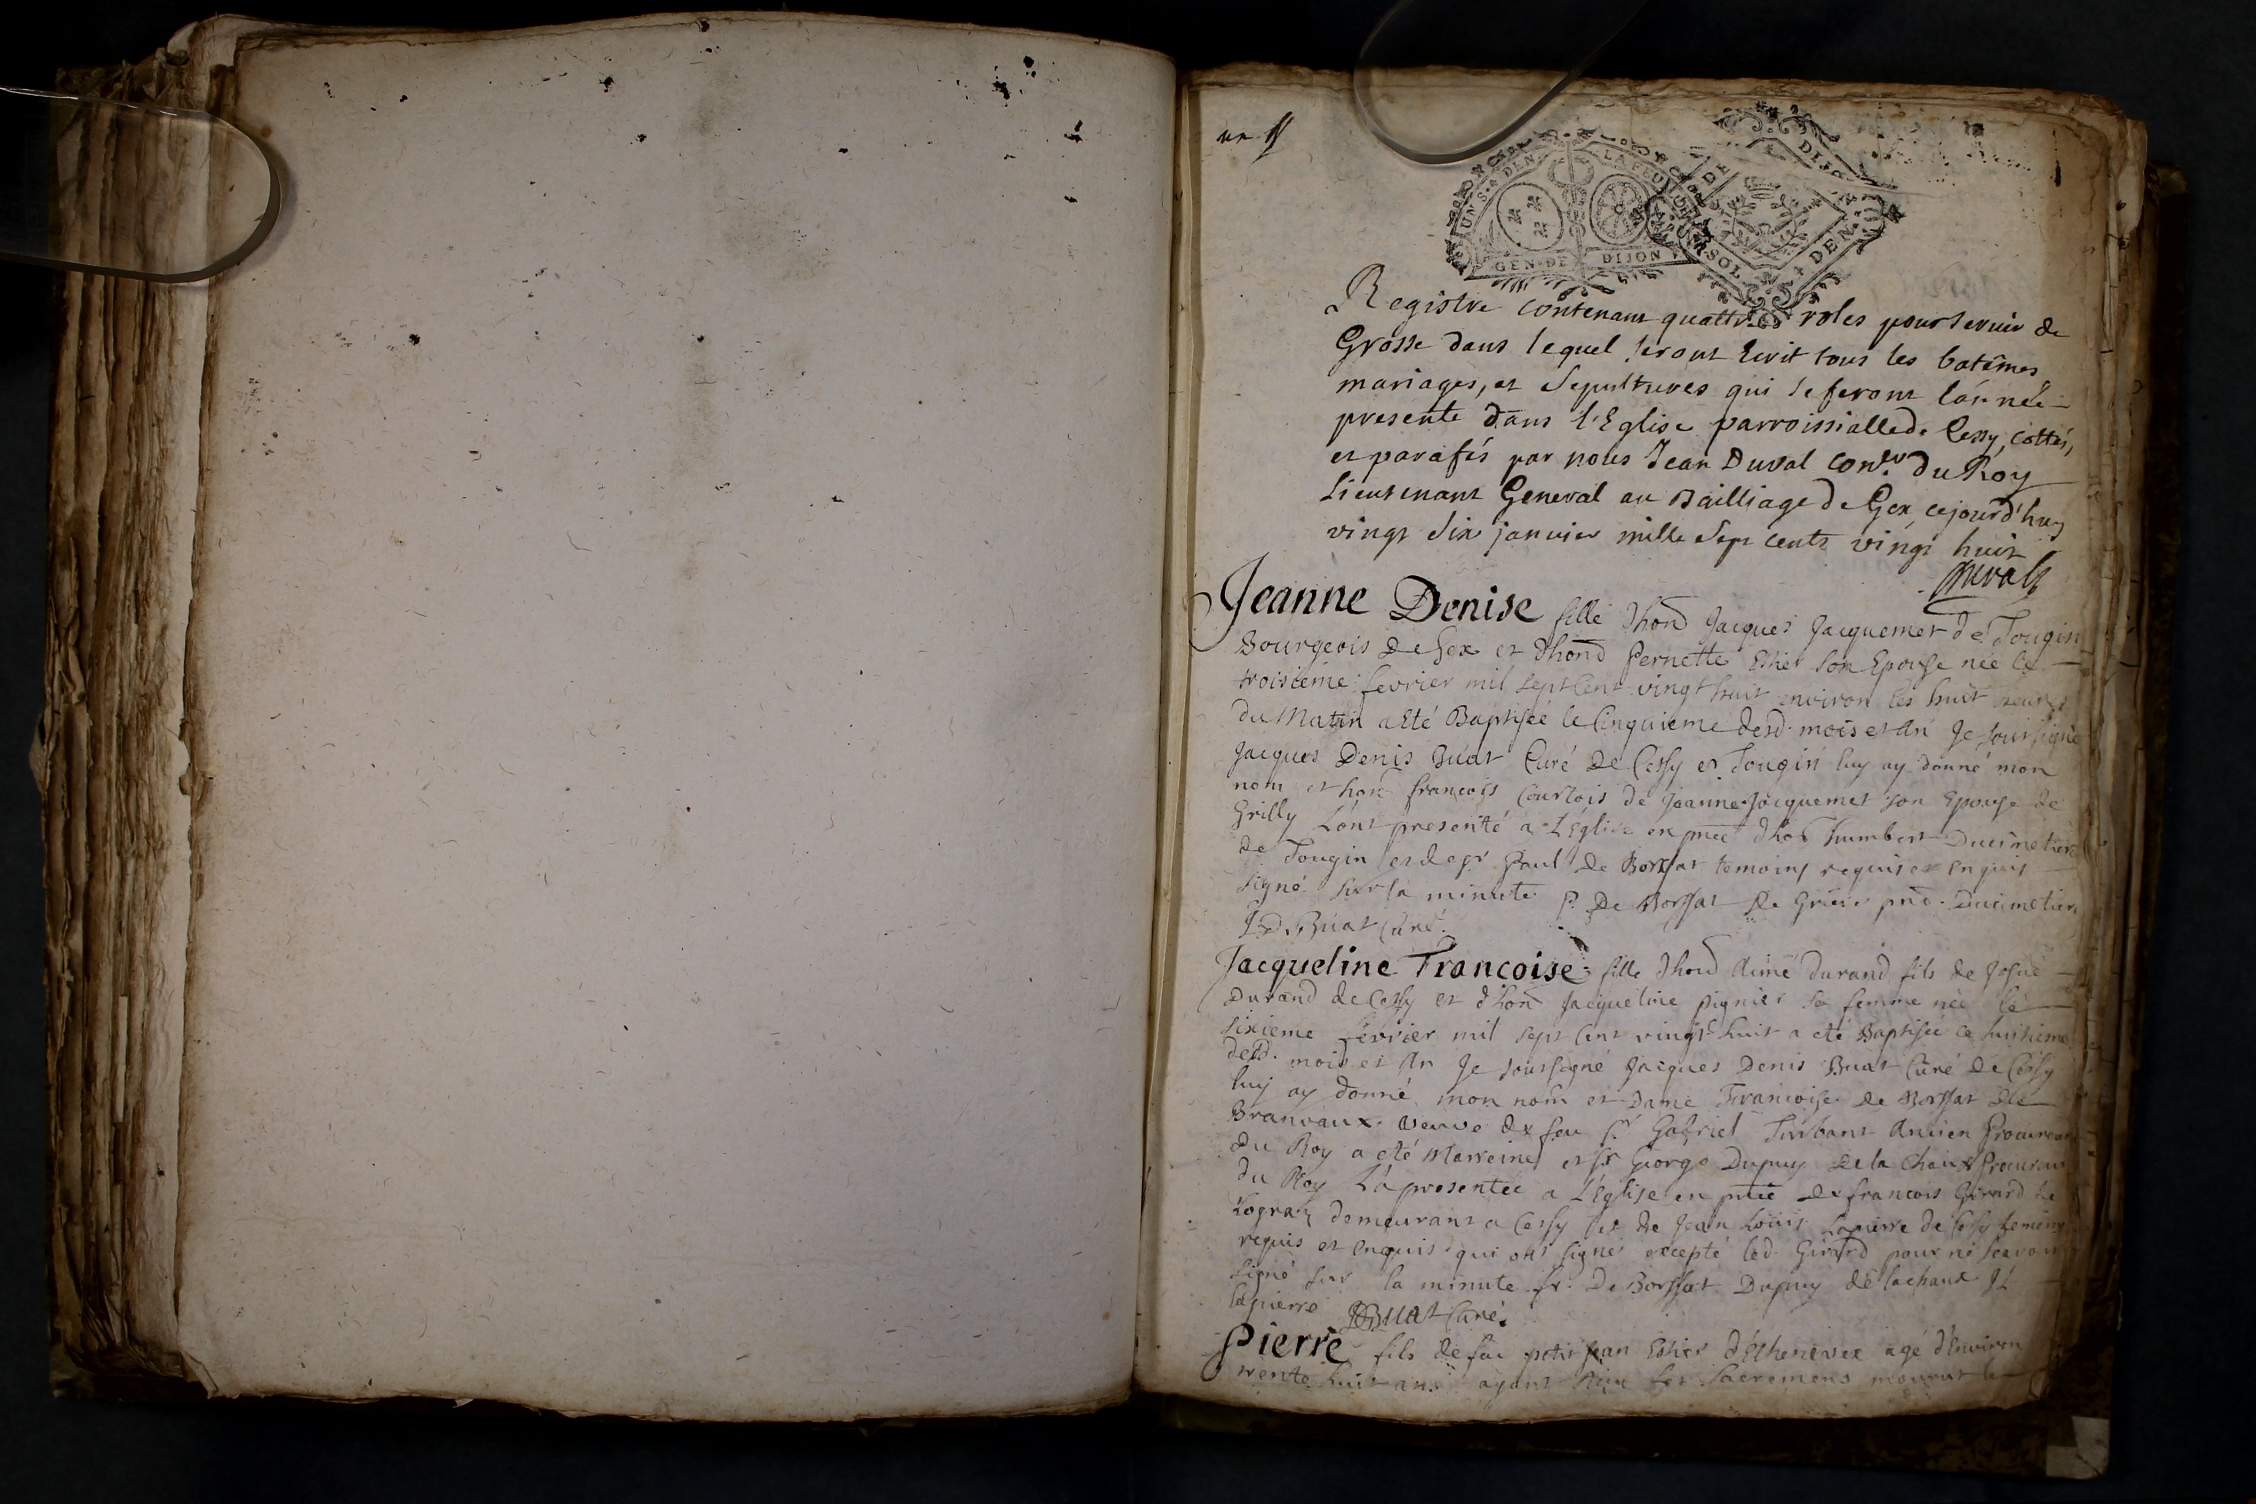 un
1
UN S. 4 DEN LA FEU
GEN. DE DIJON
DE DIJON
UN SOL 4 DEN
Registre contenant quattres roles pour servir de
Grosse dans lequel seront Ecrit tous les batêmes
mariages, et Sepultures qui se feront l'année
presente dans l'Eglise parroissialle de Cessy, cottés,
et parafés par nous Jean Duval con.er du Roy
Lieutenant General au Bailliage de Gex, cejourd'huy
vingt six janvier mille sept cents vingt huit
Duval
Jeanne Denise fille d'hond Jacques Jacquemet de Tougin
Bourgeois de Gex et d'hond Pernette Estier son Epouse née le
troisieme fevrier mil sept cent vingt huit environ les huit heures
du Matin a Eté Baptisée le Cinquieme desd. mois et An Je soussigné
Jacques Denis Buat Curé de Cessy et Tougin luy ay donné mon
nom et hon francois Courtois de Jeanne Jacquemet son Epouse de
Grilly L'ont presenté a L'Eglise en pnce d'hod humbert Ducimetiere
de Tougin et de sr Paul de Borssat temoins requis et enquis
signé sur la minute P. De Borssat De Ducimetiere
JD Buat Curé.
Jacqueline Francoise fille d'hond Aimé durand fils de Josué
Durand de Cessy et d'hon Jacqueline pignier sa femme née le
sixieme fevrier mil sept cent vingt huit a eté Baptisée ce huitieme
desd. mois et An Je soussigné Jacques Denis Buat Curé de Cessy
luy ay donné mon nom et Dame Francoise de Borssat De
Branvaux veuve de feu sr Gabriel Turbant Ancien Procureur
du Roy a eté Marreine et sr George Dupuy de la Chaux Procureur
du Roy L'a presentée a L'Eglise en pnce de francois Girard de
demeurant a Cessy et de Jean Louis Lapierre de Cessy temoins
requis et enquis qui ont signé excepté led. Girard pour ne scavoir
signé sur la minute fr. De Borssat Dupuy de lachaux JL
lapierre JDBuat Curé.
Pierre fils de feu petit Jean Estier d'Echenevex agé d'Environ
trente huit ans ayant Receu les Sacremens mourut le